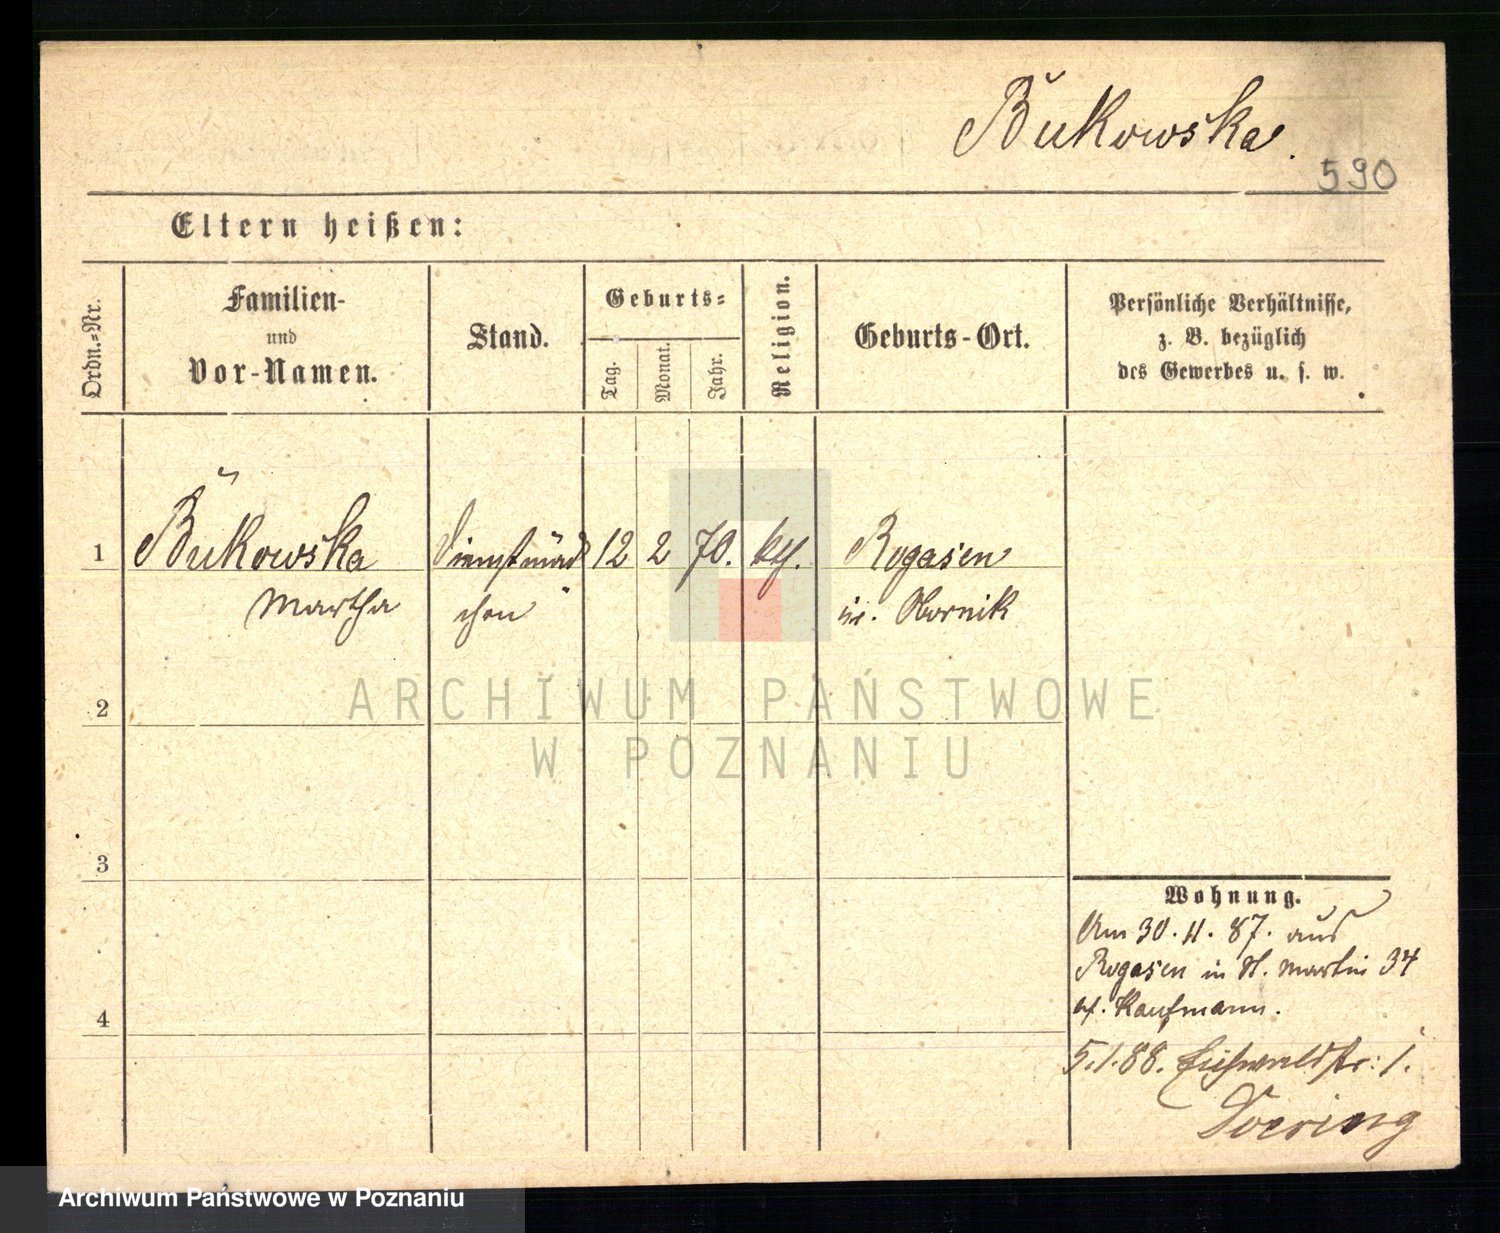 Bukowska.
590
Eltern heißen:
Ordn.-Nr.
Familien-
und
Vor-Namen.
Stand.
Geburts-
Tag.
Monat.
Jahr.
Religion.
Geburts-Ort.
Persönliche Verhältnisse,
z. B. bezüglich
des Gewerbes u. s. w.
1
Bukowska
Martha
Dienstmäd
chen
12
2
70.
kth.
Rogasen
Kr. Obornik
2
ARCHIWUM PAŃSTWOWE
W POZNANIU
3
4
Wohnung.
Am 30. 11. 87. aus
Rogasen in St. Martin 34
Kaufmann.
5.1.88. Eichwaldstr: 1.
Doering
Archiwum Państwowe w Poznaniu